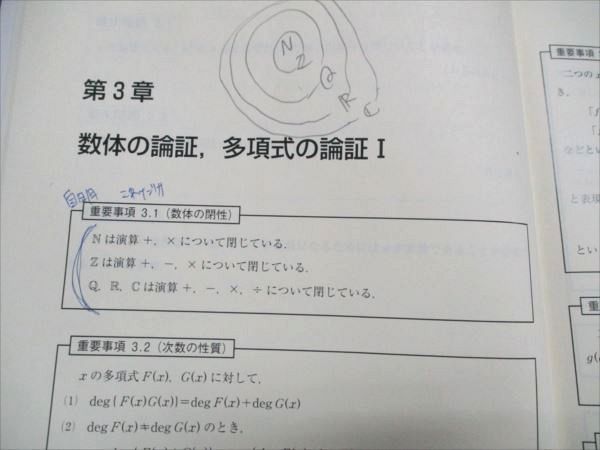 N
Z
Q
R
C
第3章
数体の論証，多項式の論証 I
重要事項 3.1（数体の閉性）
N は演算 +，× について閉じている．
Z は演算 +，−，× について閉じている．
Q，R，C は演算 +，−，×，÷ について閉じている．
重要事項 3.2（次数の性質）
x の多項式 F(x)，G(x) に対して，
(1) deg{F(x)G(x)}=deg F(x)+deg G(x)
(2) deg F(x)≠deg G(x) のとき，
重要事項
二つの
き，
「f
「
などとい
と表現
とい
重
g(